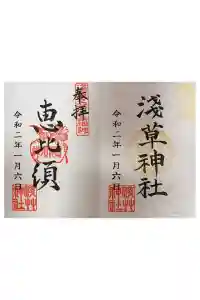 淺草神社
令和二年一月六日
奉拝
恵比須
令和二年一月六日